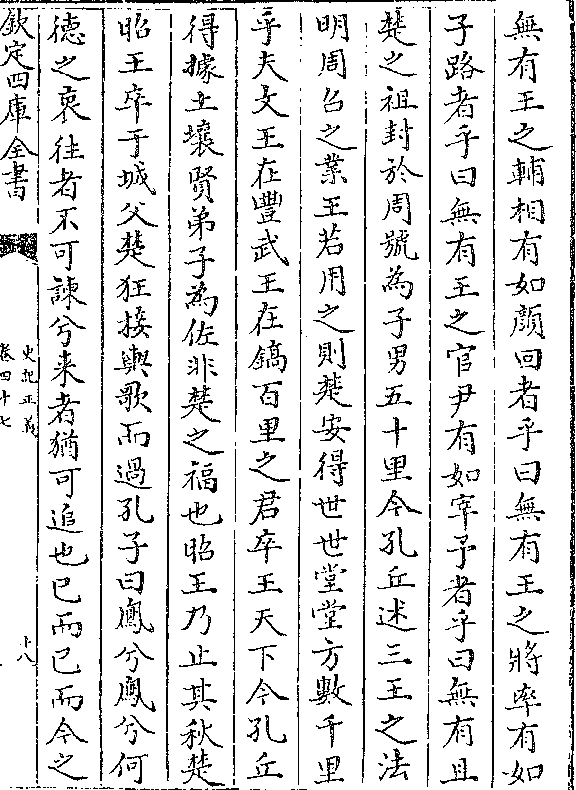 無有王之輔相有如顔回者乎曰無有王之將率有如
子路者乎曰無有王之官尹有如宰予者乎曰無有且
楚之祖封於周號為子男五十里今孔丘述三王之法
明周召之業王若用之則楚安得世世堂堂方數千里
乎夫文王在豐武王在鎬百里之君卒王天下今孔丘
得據土壤賢弟子為佐非楚之福也昭王乃止其秋楚
昭王卒于城父楚狂接輿歌而過孔子曰鳳兮鳳兮何
徳之衰往者不可諫兮来者猶可追也已而已而今之
欽定四庫全書
史記正義
卷四十七
十八